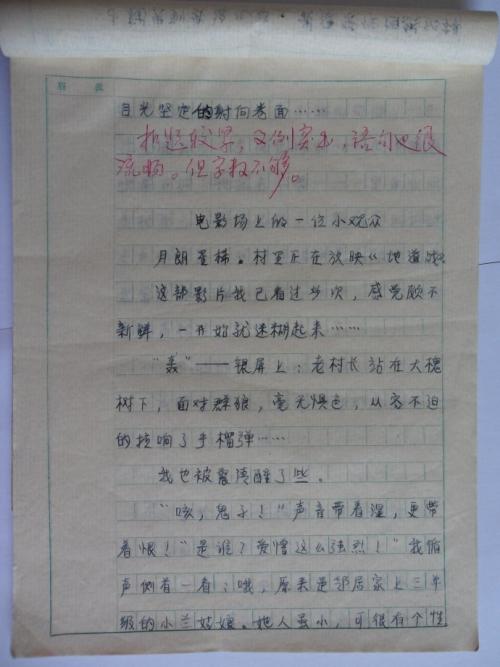 目光坚定的射向卷面……
扣题较早,文例突出,语句也很
流畅。但字数不够。
电影场上的一位小观众
月朗星稀。村里正在放映《地道战》
这部影片我已看过多次,感觉颇不
新鲜,一开始就迷糊起来……
“轰”——银屏上:老村长站在大槐
树下,面对群狼,毫无惧色,从容不迫
的拉响了手榴弹……
我也被震清醒了些。
“咳,鬼子!”声音带着湿,更带
着恨!“是谁?爱憎这么强烈!”我循
声侧首一看:哦,原来是邻居家上三年
级的小兰姑娘。她人虽小,可很有个性